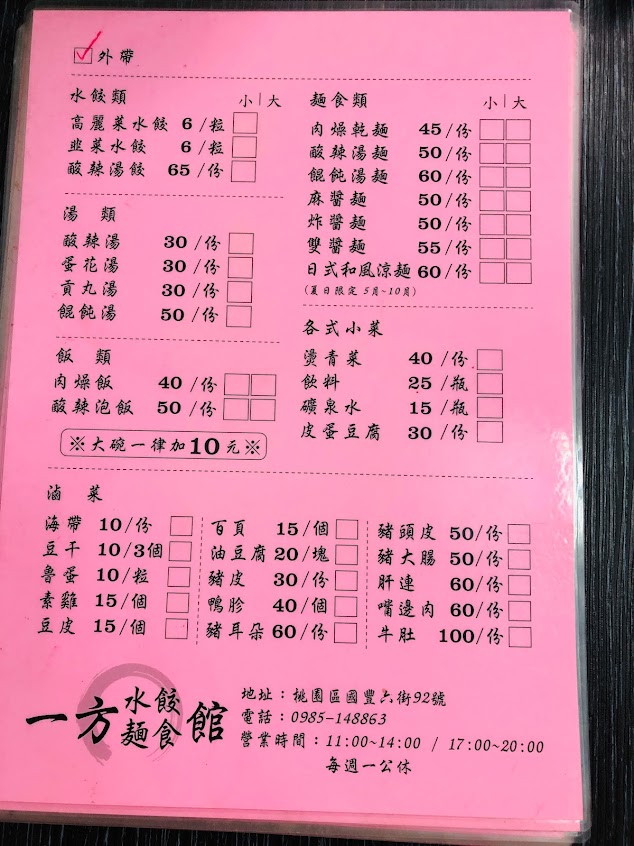 外帶
水餃類 小|大
高麗菜水餃 6/粒
韭菜水餃 6/粒
酸辣湯餃 65/份
湯 類
酸辣湯 30/份
蛋花湯 30/份
貢丸湯 30/份
餛飩湯 50/份
飯 類
肉燥飯 40/份
酸辣泡飯 50/份
※大碗一律加10元※
麵食類 小|大
肉燥乾麵 45/份
酸辣湯麵 50/份
餛飩湯麵 60/份
麻醬麵 50/份
炸醬麵 50/份
雙醬麵 55/份
日式和風涼麵 60/份
(夏日限定 5月~10月)
各式小菜
燙青菜 40/份
飲料 25/瓶
礦泉水 15/瓶
皮蛋豆腐 30/份
滷 菜
海帶 10/份
豆干 10/3個
魯蛋 10/粒
素雞 15/個
豆皮 15/個
百頁 15/個
油豆腐 20/塊
豬皮 30/份
鴨胗 40/個
豬耳朵 60/份
豬頭皮 50/份
豬大腸 50/份
肝連 60/份
嘴邊肉 60/份
牛肚 100/份
一方水餃麵食館
地址：桃園區國豐六街92號
電話：0985-148863
營業時間：11:00~14:00 / 17:00~20:00
每週一公休